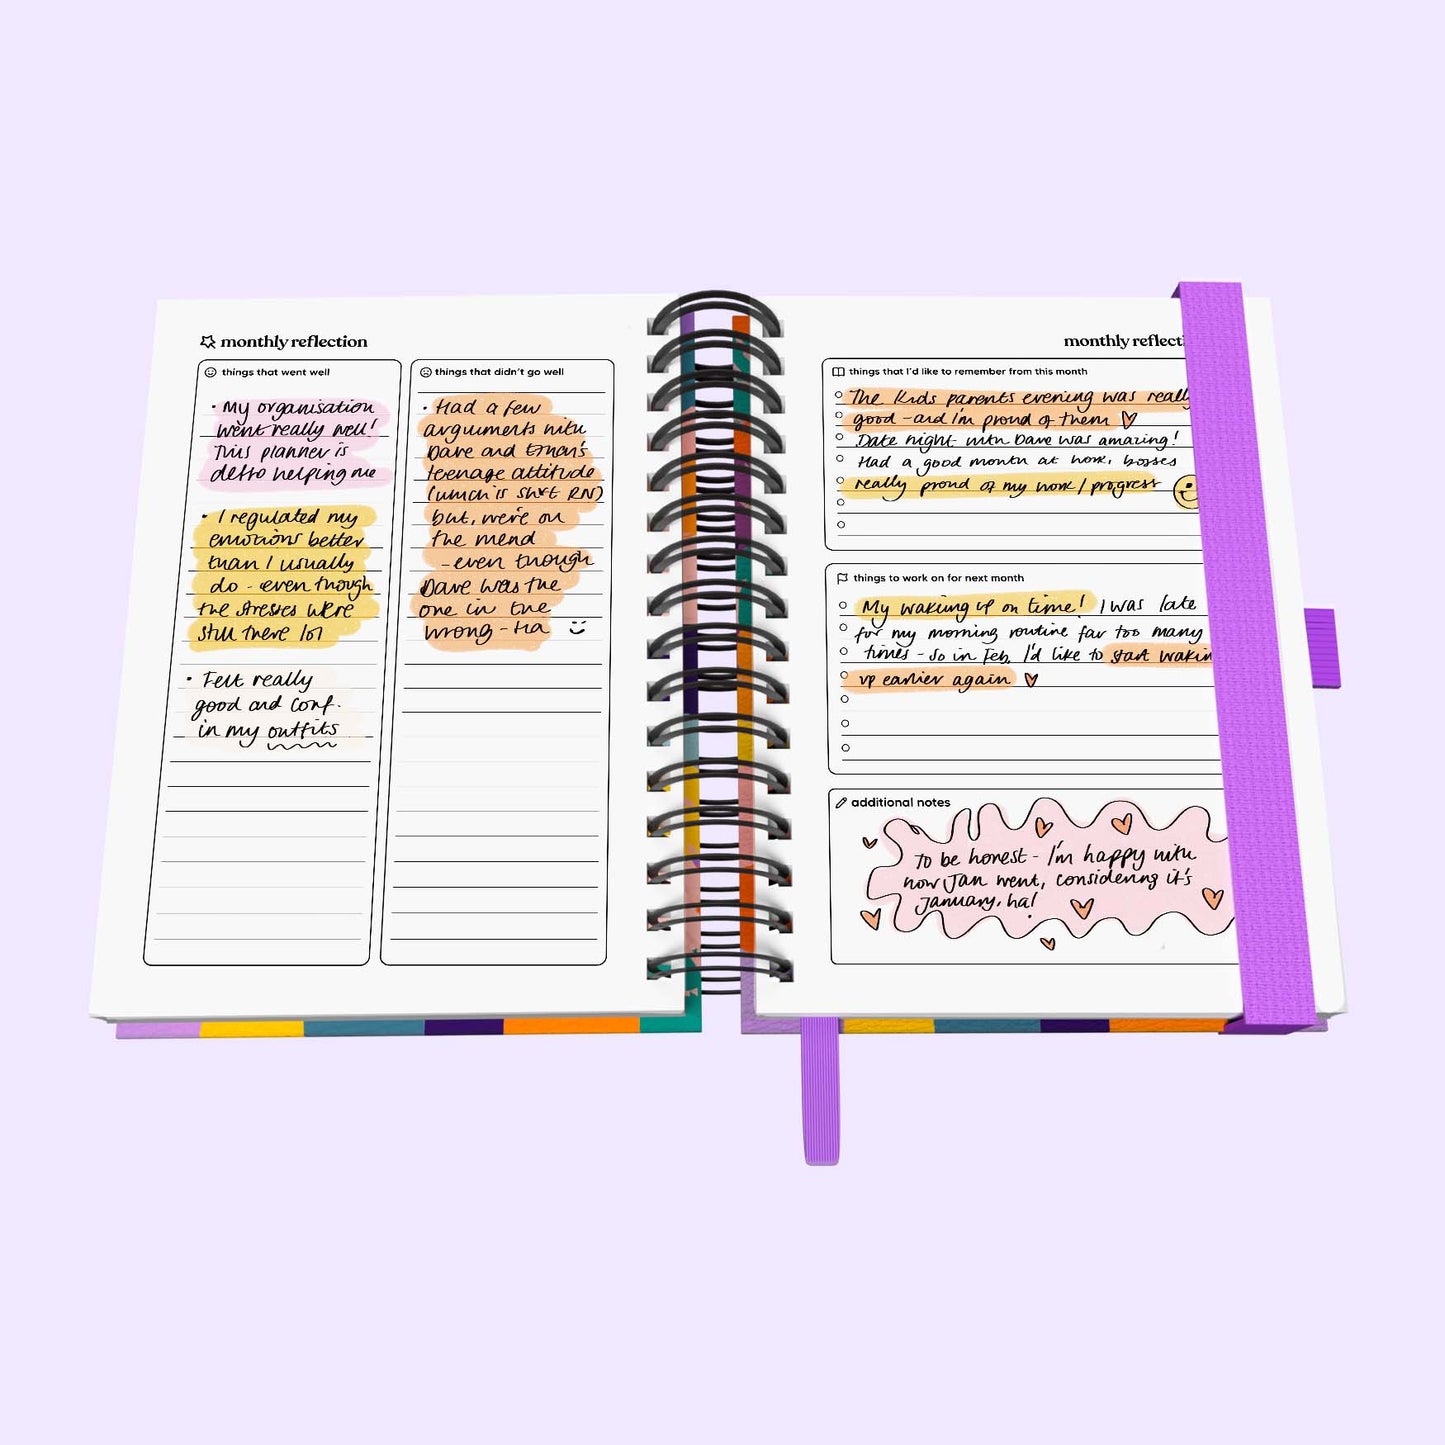 monthly reflection
things that went well
• My organisation
went really well!
This planner is
defto helping me
• I regulated my
emotions better
than I usually
do - even though
the stresses were
still there lol
• Felt really
good and conf.
in my outfits
things that didn't go well
• Had a few
arguments with
Dave and
teenage attitude
(which is RN)
but, we're on
the mend
- even though
Dave was the
one in the
wrong - Ha
monthly
things that I'd like to remember from this month
The Kids parents evening was
good - and I'm proud of them
Date night with Dave was amazing!
Had a good month at work, bosses
really proud of my work / progress
things to work on for next month
My waking up on time! I was late
for my morning routine far too many
times - so in Feb, I'd like to start
up earlier again
additional notes
To be honest - I'm happy with
how Jan went, considering it's
January, ha!